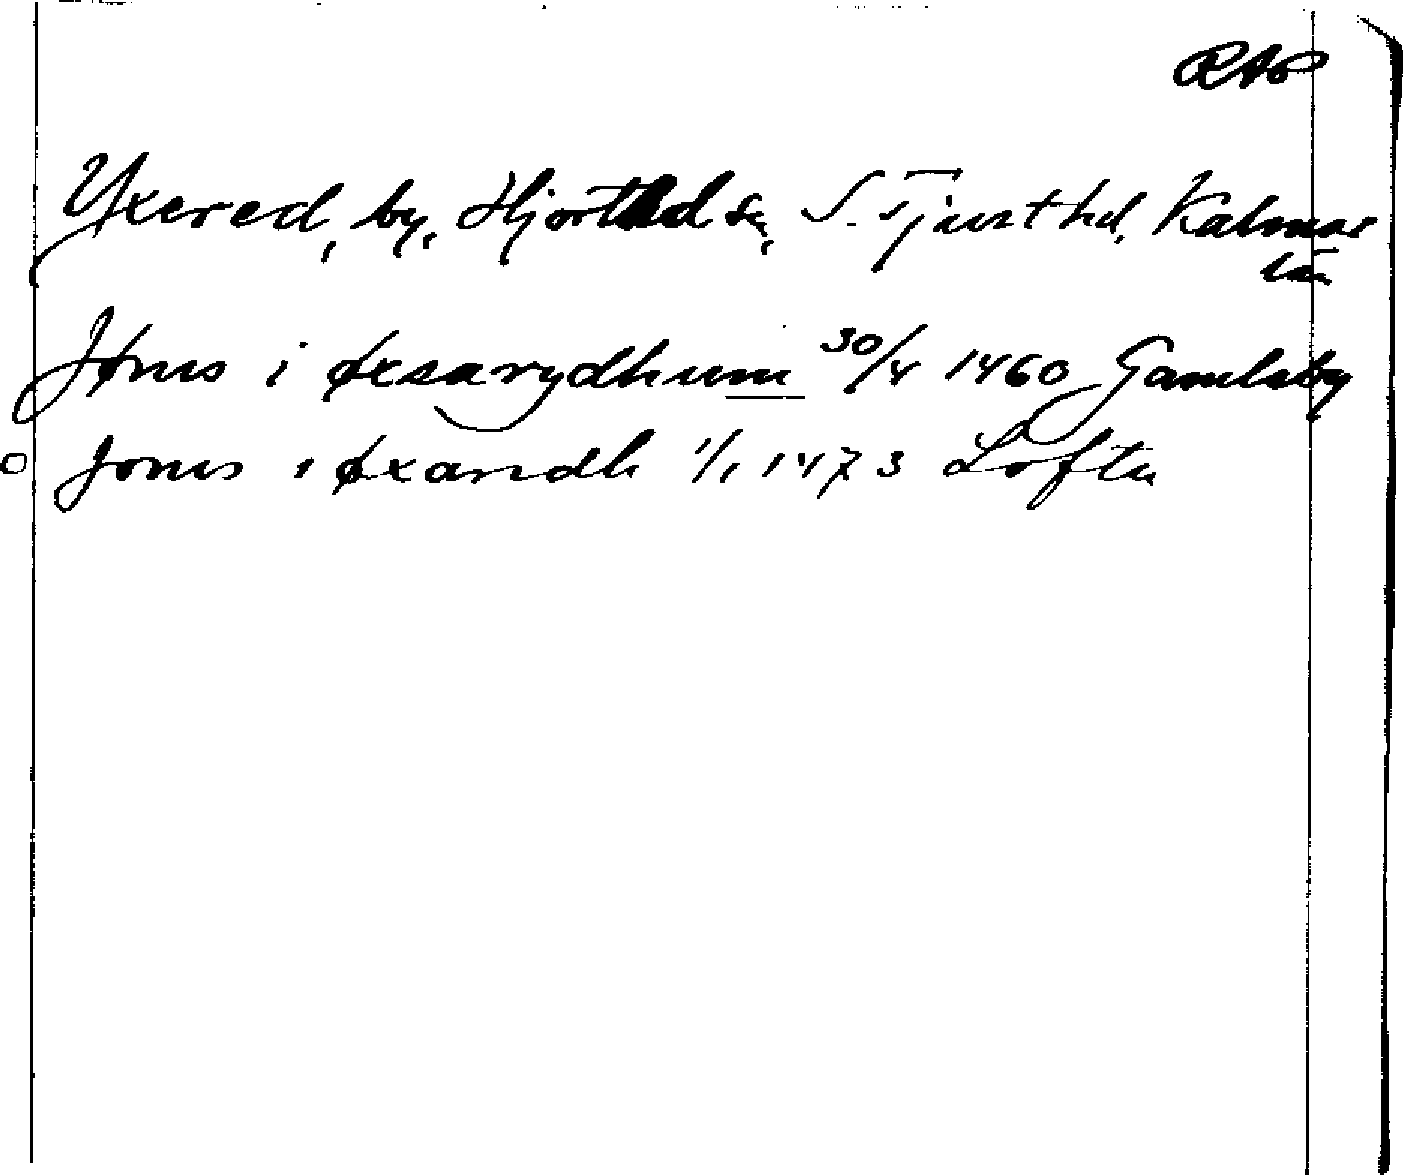 RAP
Yxered, by, Hjorted sn, S. Tjust hd, Kalmar
län
Jønis i øxsarydhum 30/4 1460 Gamleby
Jonis i øxaridh 1/1 1473 Lofta